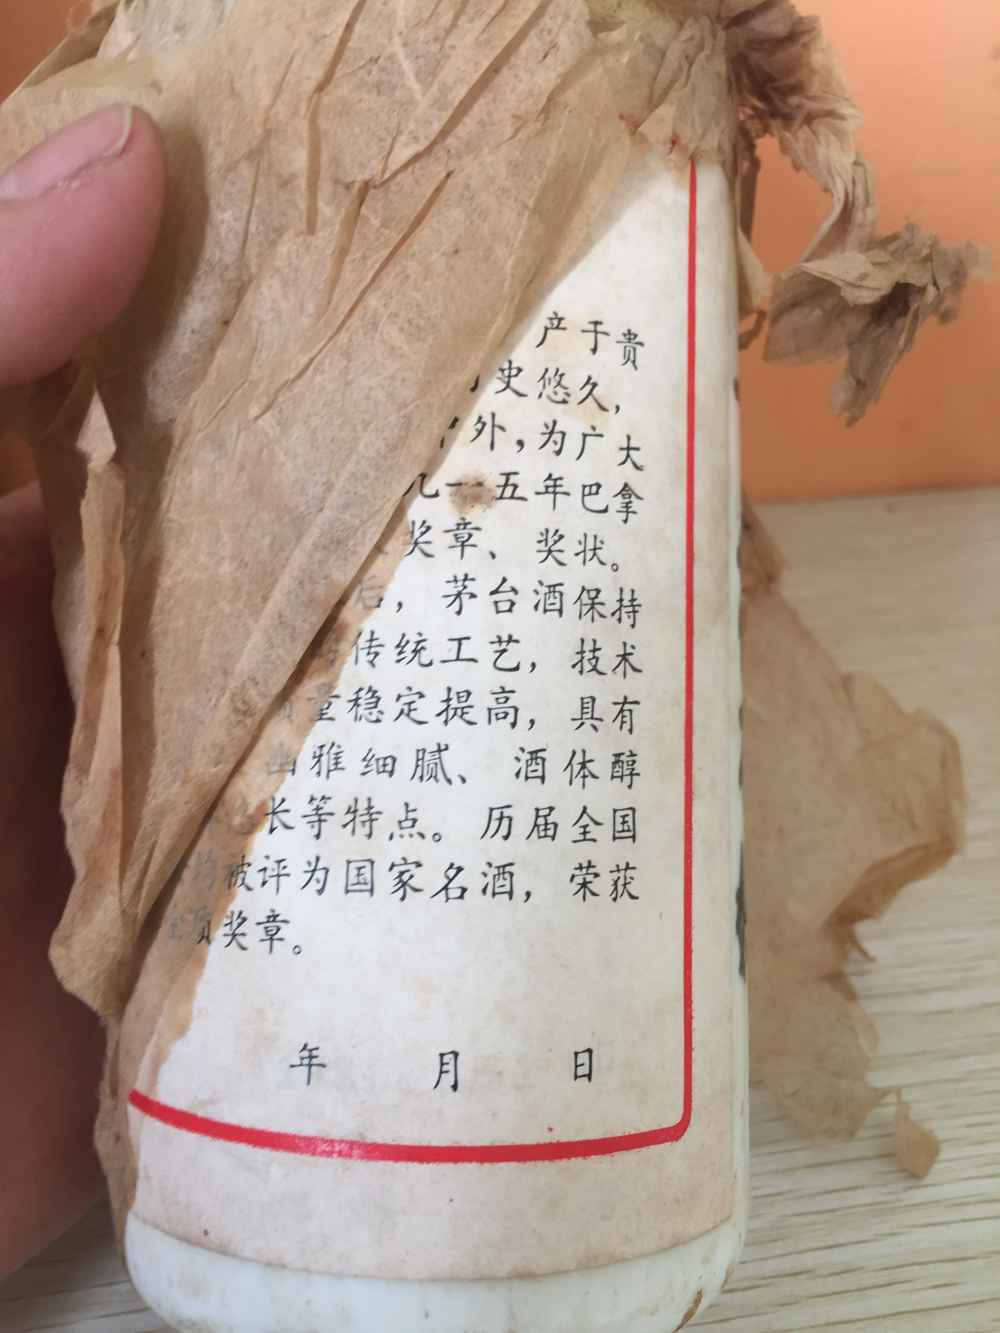 产于贵
史悠久,
外,为广大
九一五年巴拿
奖章、奖状。
后,茅台酒保持
传统工艺,技术
质量稳定提高,具有
幽雅细腻、酒体醇
悠长等特点。历届全国
均被评为国家名酒,荣获
金质奖章。
年 月 日